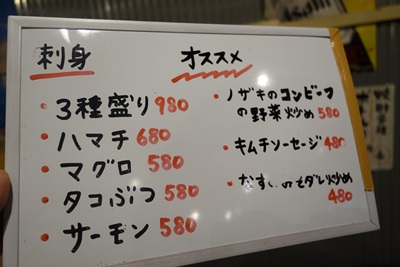 刺身
・3種盛り 980
・ハマチ 680
・マグロ 580
・タコぶつ 580
・サーモン 580
オススメ
・ノザキのコンビーフ
の野菜炒め 580
・キムチソーセージ 480
・なす
ダレ炒め
480